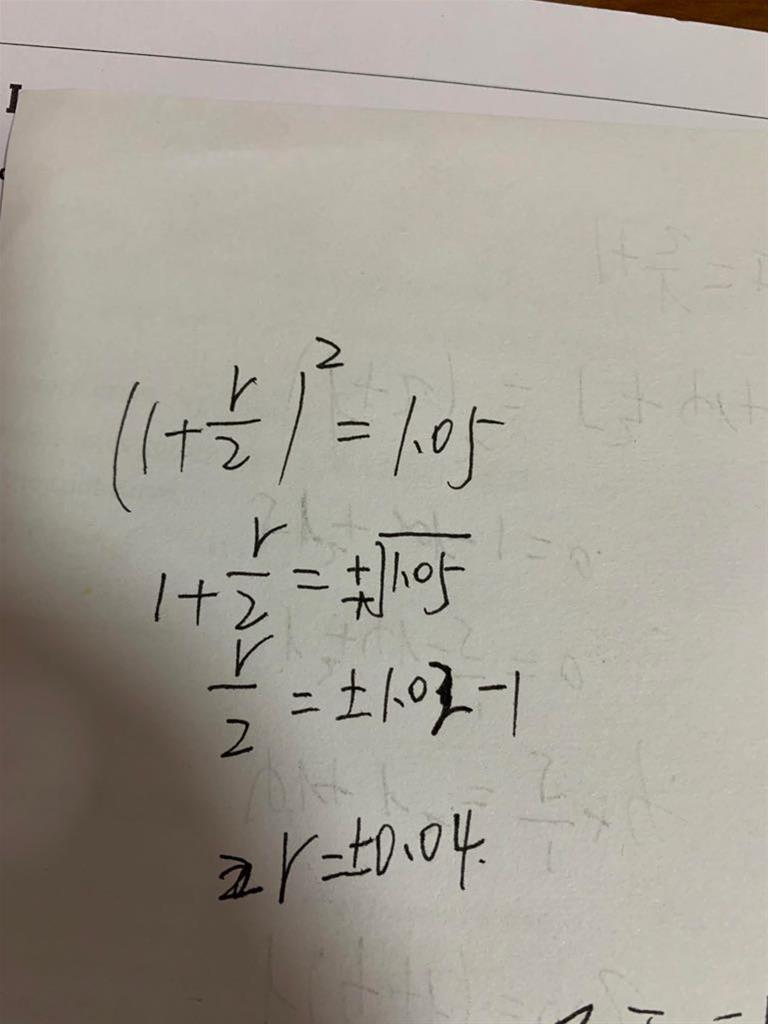 (1+r/2)² = 1.05
1+r/2 = ±√1.05
r/2 = ±1.02-1
r=±0.04.